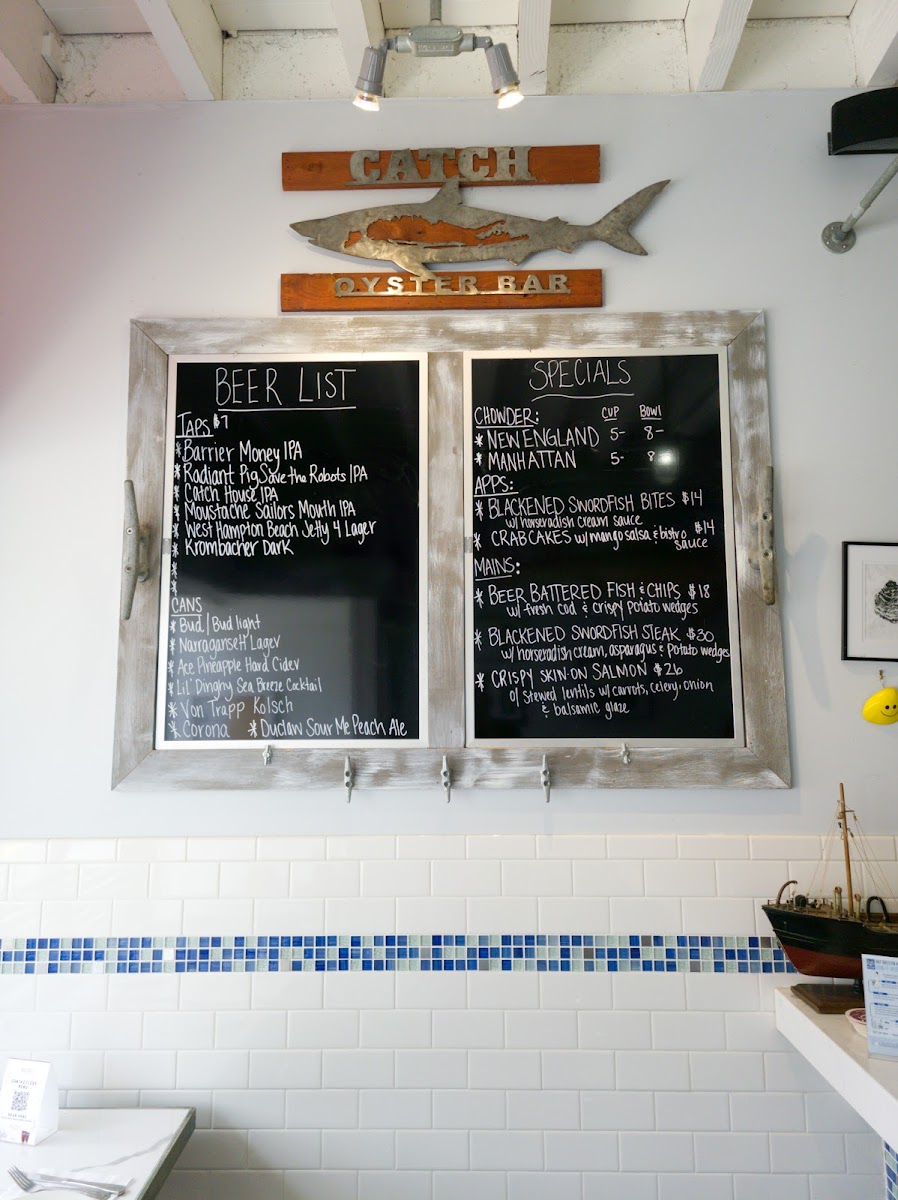 CATCH
OYSTER BAR
BEER LIST
TAPS $7
* Barrier Money IPA
* Radiant Pig Save the Robots IPA
* Catch House IPA
* Moustache Sailors Mouth IPA
* West Hampton Beach Jetty 4 Lager
* Krombacher Dark
*
*
*
CANS
* Bud/Bud light
* Narragansett Lager
* Ace Pineapple Hard Cider
* Lil' Dinghy Sea Breeze Cocktail
* Von Trapp Kolsch
* Corona * Duclaw Sour Me Peach Ale
SPECIALS
CHOWDER: CUP BOWL
* NEW ENGLAND 5- 8-
* MANHATTAN 5- 8-
APPS:
* BLACKENED SWORDFISH BITES $14
w/ horseradish cream sauce
* CRABCAKES w/ mango salsa & bistro sauce $14
MAINS:
* BEER BATTERED FISH & CHIPS $18
w/ fresh cod & crispy potato wedges
* BLACKENED SWORDFISH STEAK $30
w/ horseradish cream, asparagus & potato wedges
* CRISPY SKIN-ON SALMON $26
o/ stewed lentils w/ carrots, celery, onion
& balsamic glaze